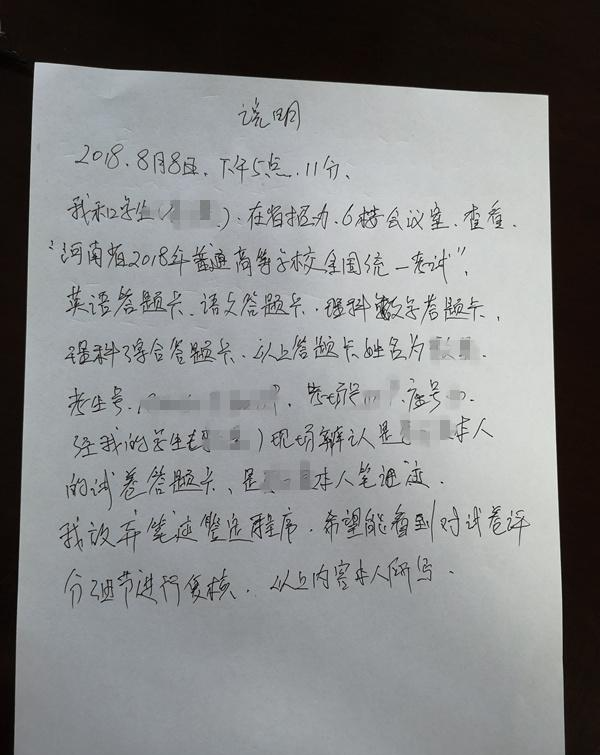 说明
2018.8月8日.下午5点.11分、
我和学生( ).在省招办.6楼会议室.查看.
"河南省2018年普通高等学校全国统一考试".
英语答题卡、语文答题卡.理科数学答题卡、
理科综合答题卡.以上答题卡姓名为
考生号. .考场号 .座号 .
经我的学生 )现场辨认是 本人
的试卷答题卡、是 本人笔迹.
我放弃笔迹鉴定程序.希望能看到对试卷评
分细节进行复核.以上内容本人所写.